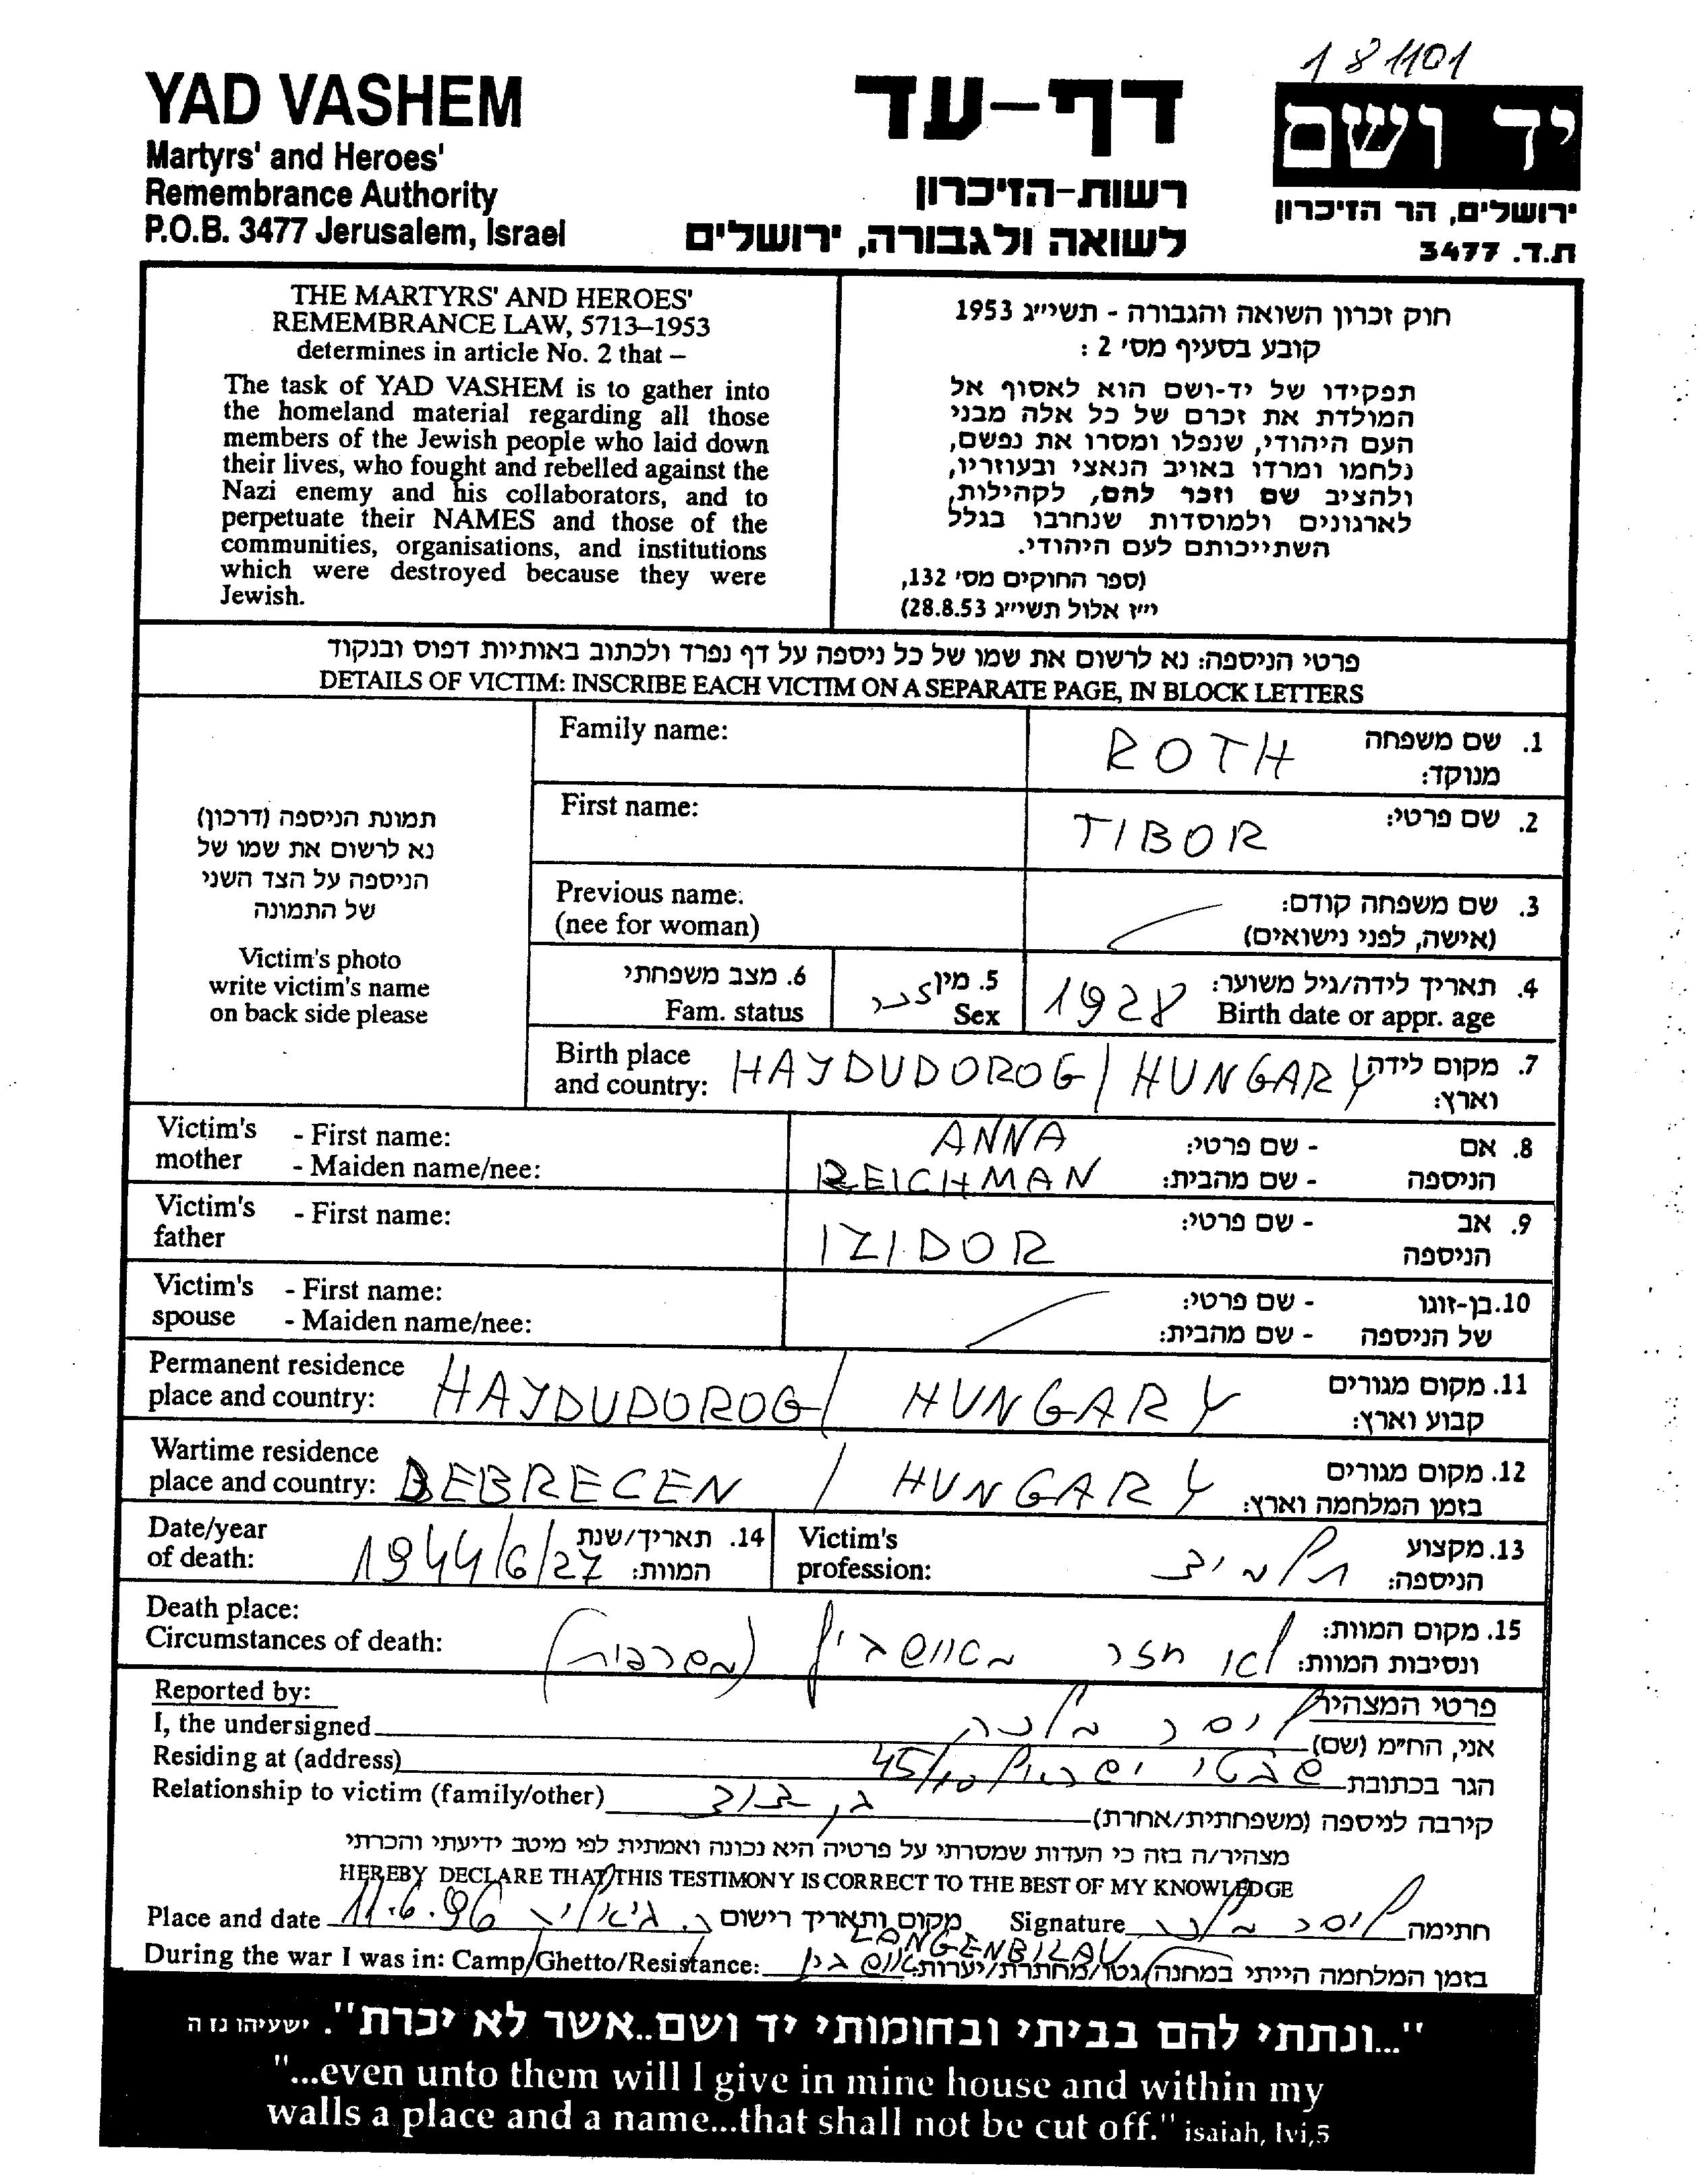 181101
YAD VASHEM
Martyrs' and Heroes'
Remembrance Authority
P.O.B. 3477 Jerusalem, Israel
דף-עד
רשות-הזיכרון
לשואה ולגבורה, ירושלים
יד ושם
ירושלים, הר הזיכרון
ת.ד. 3477
THE MARTYRS' AND HEROES'
REMEMBRANCE LAW, 5713–1953
determines in article No. 2 that –
The task of YAD VASHEM is to gather into
the homeland material regarding all those
members of the Jewish people who laid down
their lives, who fought and rebelled against the
Nazi enemy and his collaborators, and to
perpetuate their NAMES and those of the
communities, organisations, and institutions
which were destroyed because they were
Jewish.
חוק זכרון השואה והגבורה - תשי״ג 1953
קובע בסעיף מס׳ 2 :
תפקידו של יד-ושם הוא לאסוף אל
המולדת את זכרם של כל אלה מבני
העם היהודי, שנפלו ומסרו את נפשם,
נלחמו ומרדו באויב הנאצי ובעוזריו,
ולהציב שם וזכר להם, לקהילות,
לארגונים ולמוסדות שנחרבו בגלל
השתייכותם לעם היהודי.
(ספר החוקים מס׳ 132,
י״ז אלול תשי״ג 28.8.53)
פרטי הניספה: נא לרשום את שמו של כל ניספה על דף נפרד ולכתוב באותיות דפוס ובנקוד
DETAILS OF VICTIM: INSCRIBE EACH VICTIM ON A SEPARATE PAGE, IN BLOCK LETTERS
תמונת הניספה (דרכון)
נא לרשום את שמו של
הניספה על הצד השני
של התמונה
Victim's photo
write victim's name
on back side please
Family name: ROTH 1. שם משפחה
מנוקד:
First name: TIBOR 2. שם פרטי:
Previous name: 3. שם משפחה קודם:
(nee for woman) (אישה, לפני נישואים)
6. מצב משפחתי 5. מין זכר 1928 4. תאריך לידה/גיל משוער:
Fam. status Sex Birth date or appr. age
Birth place HAJDUDOROG / HUNGARY 7. מקום לידה
and country: וארץ:
Victim's - First name: ANNA - שם פרטי: 8. אם
mother - Maiden name/nee: REICHMAN - שם מהבית: הניספה
Victim's - First name: IZIDOR - שם פרטי: 9. אב
father הניספה
Victim's - First name: - שם פרטי: 10. בן-זוגו
spouse - Maiden name/nee: - שם מהבית: של הניספה
Permanent residence 11. מקום מגורים
place and country: HAJDUDOROG / HUNGARY קבוע וארץ:
Wartime residence 12. מקום מגורים
place and country: BEBRECEN / HUNGARY בזמן המלחמה וארץ:
Date/year 1944/6/27 14. תאריך/שנת Victim's 13. מקצוע
of death: המוות: profession: תלמיד הניספה:
Death place: 15. מקום המוות:
Circumstances of death: לא חזר מאושביץ (משרפות) ונסיבות המוות:
Reported by: פרטי המצהיר
I, the undersigned אני, הח״מ (שם)
Residing at (address) שבטי ישראל 45/10 הגר בכתובת
Relationship to victim (family/other) בן דוד קירבה לניספה (משפחתית/אחרת)
מצהיר/ה בזה כי העדות שמסרתי על פרטיה היא נכונה ואמתית לפי מיטב ידיעתי והכרתי
HEREBY DECLARE THAT THIS TESTIMONY IS CORRECT TO THE BEST OF MY KNOWLEDGE
Place and date 11.6.96 מקום ותאריך רישום Signature חתימה
LANGENBILAU
During the war I was in: Camp/Ghetto/Resistance: בזמן המלחמה הייתי במחנה/גטו/מחתרת/יערות:
"...ונתתי להם בביתי ובחומותי יד ושם..אשר לא יכרת". ישעיהו נו ה
"...even unto them will I give in mine house and within my
walls a place and a name...that shall not be cut off." isaiah, lvi,5